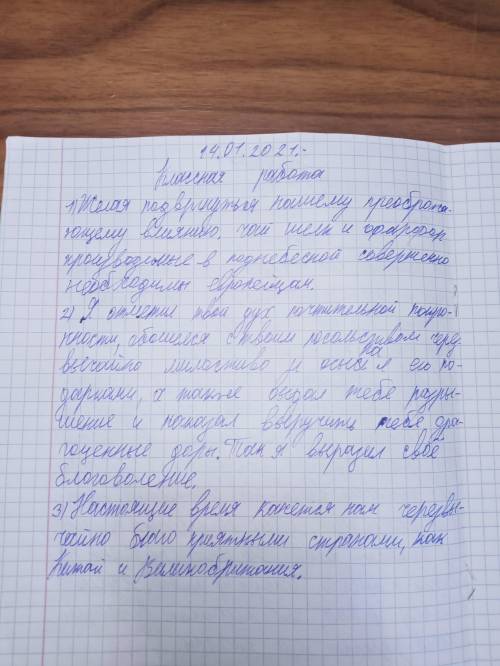 14.01.2021.-
Классная работа
1) Желая подвергнуться нашему преобража-
ющему влиянию, чай шелк и фарфор
производимые в поднебесной совершенно
необходимы европейцам.
2) Я отметил твой дух почтительной покро-
ности, обошелся с твоим посольством чрез
вычайно милостиво и осыпал его по-
дарками, а также выдал тебе разре-
шение и показал выручить тебе дра-
гоценные дары. Так я выразил своё
благоволение.
3) Настоящие время кажется нам черезвы-
чайно благоприятными странами, как
Китай и Великобритания.